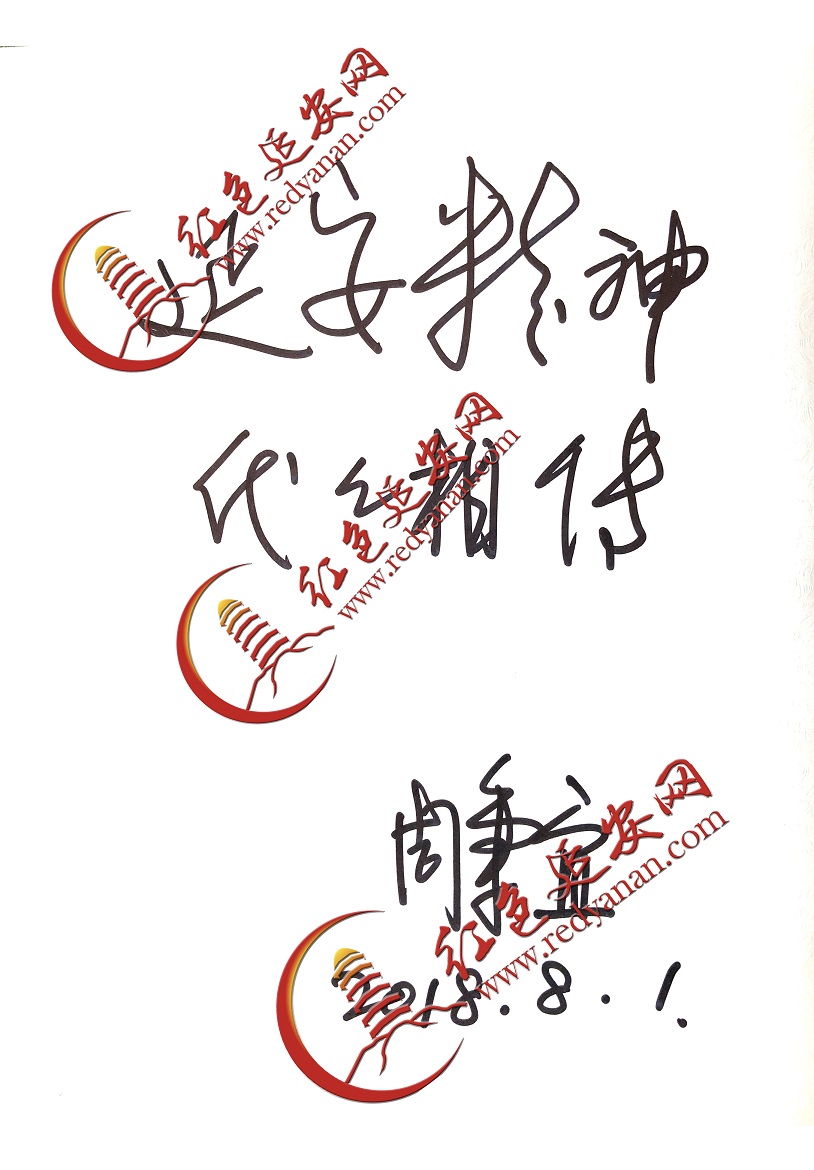 红色延安网
www.redyanan.com
延安精神
代代相传
红色延安网
www.redyanan.com
周秉宜
红色延安网
www.redyanan.com
2018.8.1.